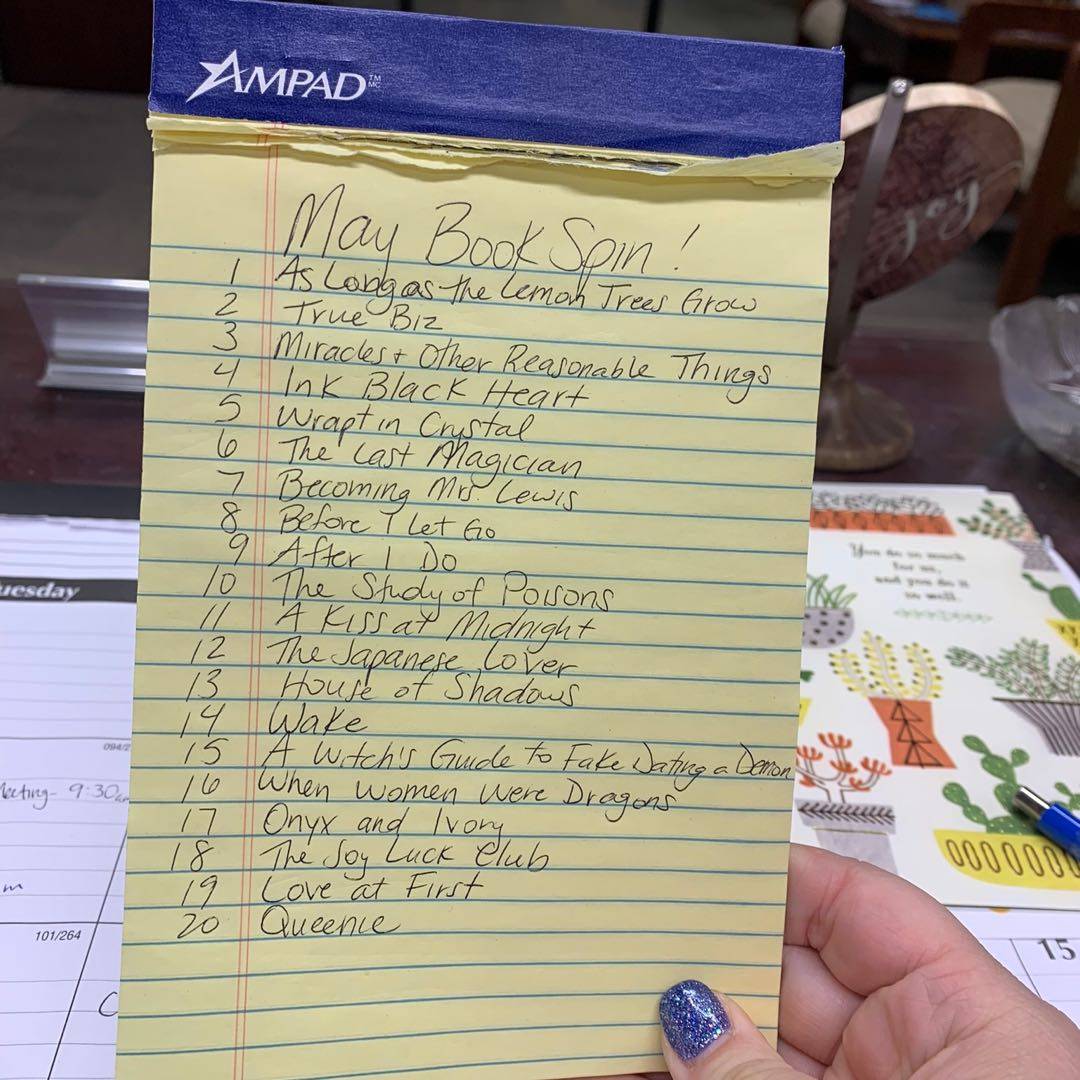 AMPAD™
MC
May Book Spin!
1 As Long as the Lemon Trees Grow
2 True Biz
3 Miracles + Other Reasonable Things
4 Ink Black Heart
5 Wrapt in Crystal
6 The Last Magician
7 Becoming Mrs. Lewis
8 Before I Let Go
9 After I Do
10 The Study of Poisons
11 A Kiss at Midnight
12 The Japanese Lover
13 House of Shadows
14 Wake
15 A Witch's Guide to Fake Dating a Demon
16 When Women Were Dragons
17 Onyx and Ivory
18 The Joy Luck Club
19 Love at First
20 Queenie
joy
You do so much
for us,
and you do it
so well.
uesday
094/2
eeting- 9:30am
m
101/264
C
15